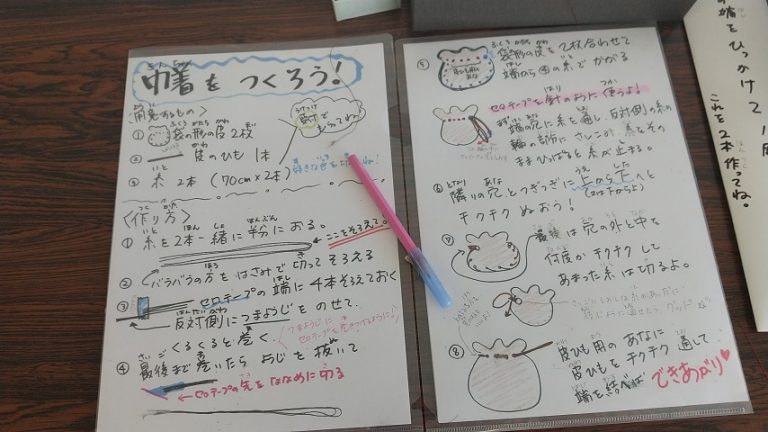 巾着をつくろう!
<用意するもの>
① 袋の形の皮 2枚
② 皮のひも 1本
③ 糸 2本 (70cm×2本)
受付でもらってね
好きな色を
<作り方>
① 糸を2本一緒に半分におる。
ここをそろえて。
② バラバラの方をはさみで切ってそろえる
③ セロテープの端に4本そろえておく
反対側につまようじをのせて、
くるくると巻く
④ 最後まで巻いたら ようじを抜いて
←セロテープの先をななめに切る
⑤ 袋形の皮を2枚合わせて
端から④の糸でかがる
セロテープを針のように使うよ!
端の穴に糸を通し、反対側の糸の
輪の部分にさしこみ 糸をその
ままひっぱると糸が止まる。
⑥ 隣りの穴とつぎつぎに上から下へと
(又は下から上)
チクチク ぬおう!
⑦ 最後は穴の外と中を
何度かチクチクして
あまった糸は切るよ。
⑧ 皮ひも用のあなに
皮ひもをチクチク通して
端を結べば できあがり♥
の端をひっかけて
これを2本作ってね。